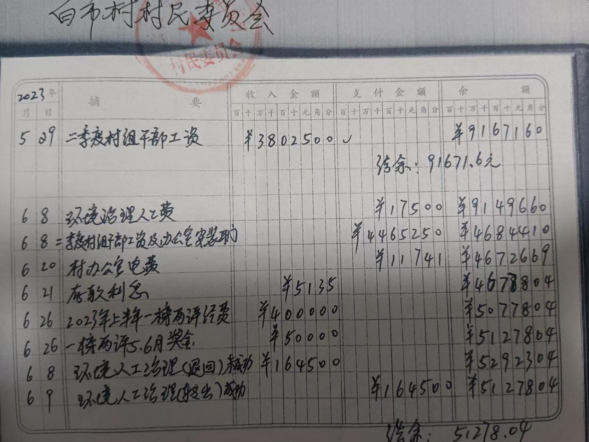 白市村村民委员会
村民委员会
2023年 摘要 收入金额 支付金额 余额
月 日 百十万千百十元角分 百十万千百十元角分 百十万千百十元角分
5 29 二季度村组干部工资 ¥3802500 ¥9167160
结余：91671.6元
6 8 环境治理人工费 ¥17500 ¥9149660
6 8 二季度村组干部工资及办公室 ¥4465250 ¥4684410
6 20 村办公室电费 ¥11741 ¥4672669
6 21 存款利息 ¥5135 ¥4677804
6 26 2023年上半年一榜两评经费 ¥400000 ¥5077804
6 26 一榜两评5.6月奖金 ¥50000 ¥5127804
6 8 环境人工治理(退回)未成功 ¥164500 ¥5292304
6 9 环境人工治理(转出)成功 ¥164500 ¥5127804
结余：51278.04